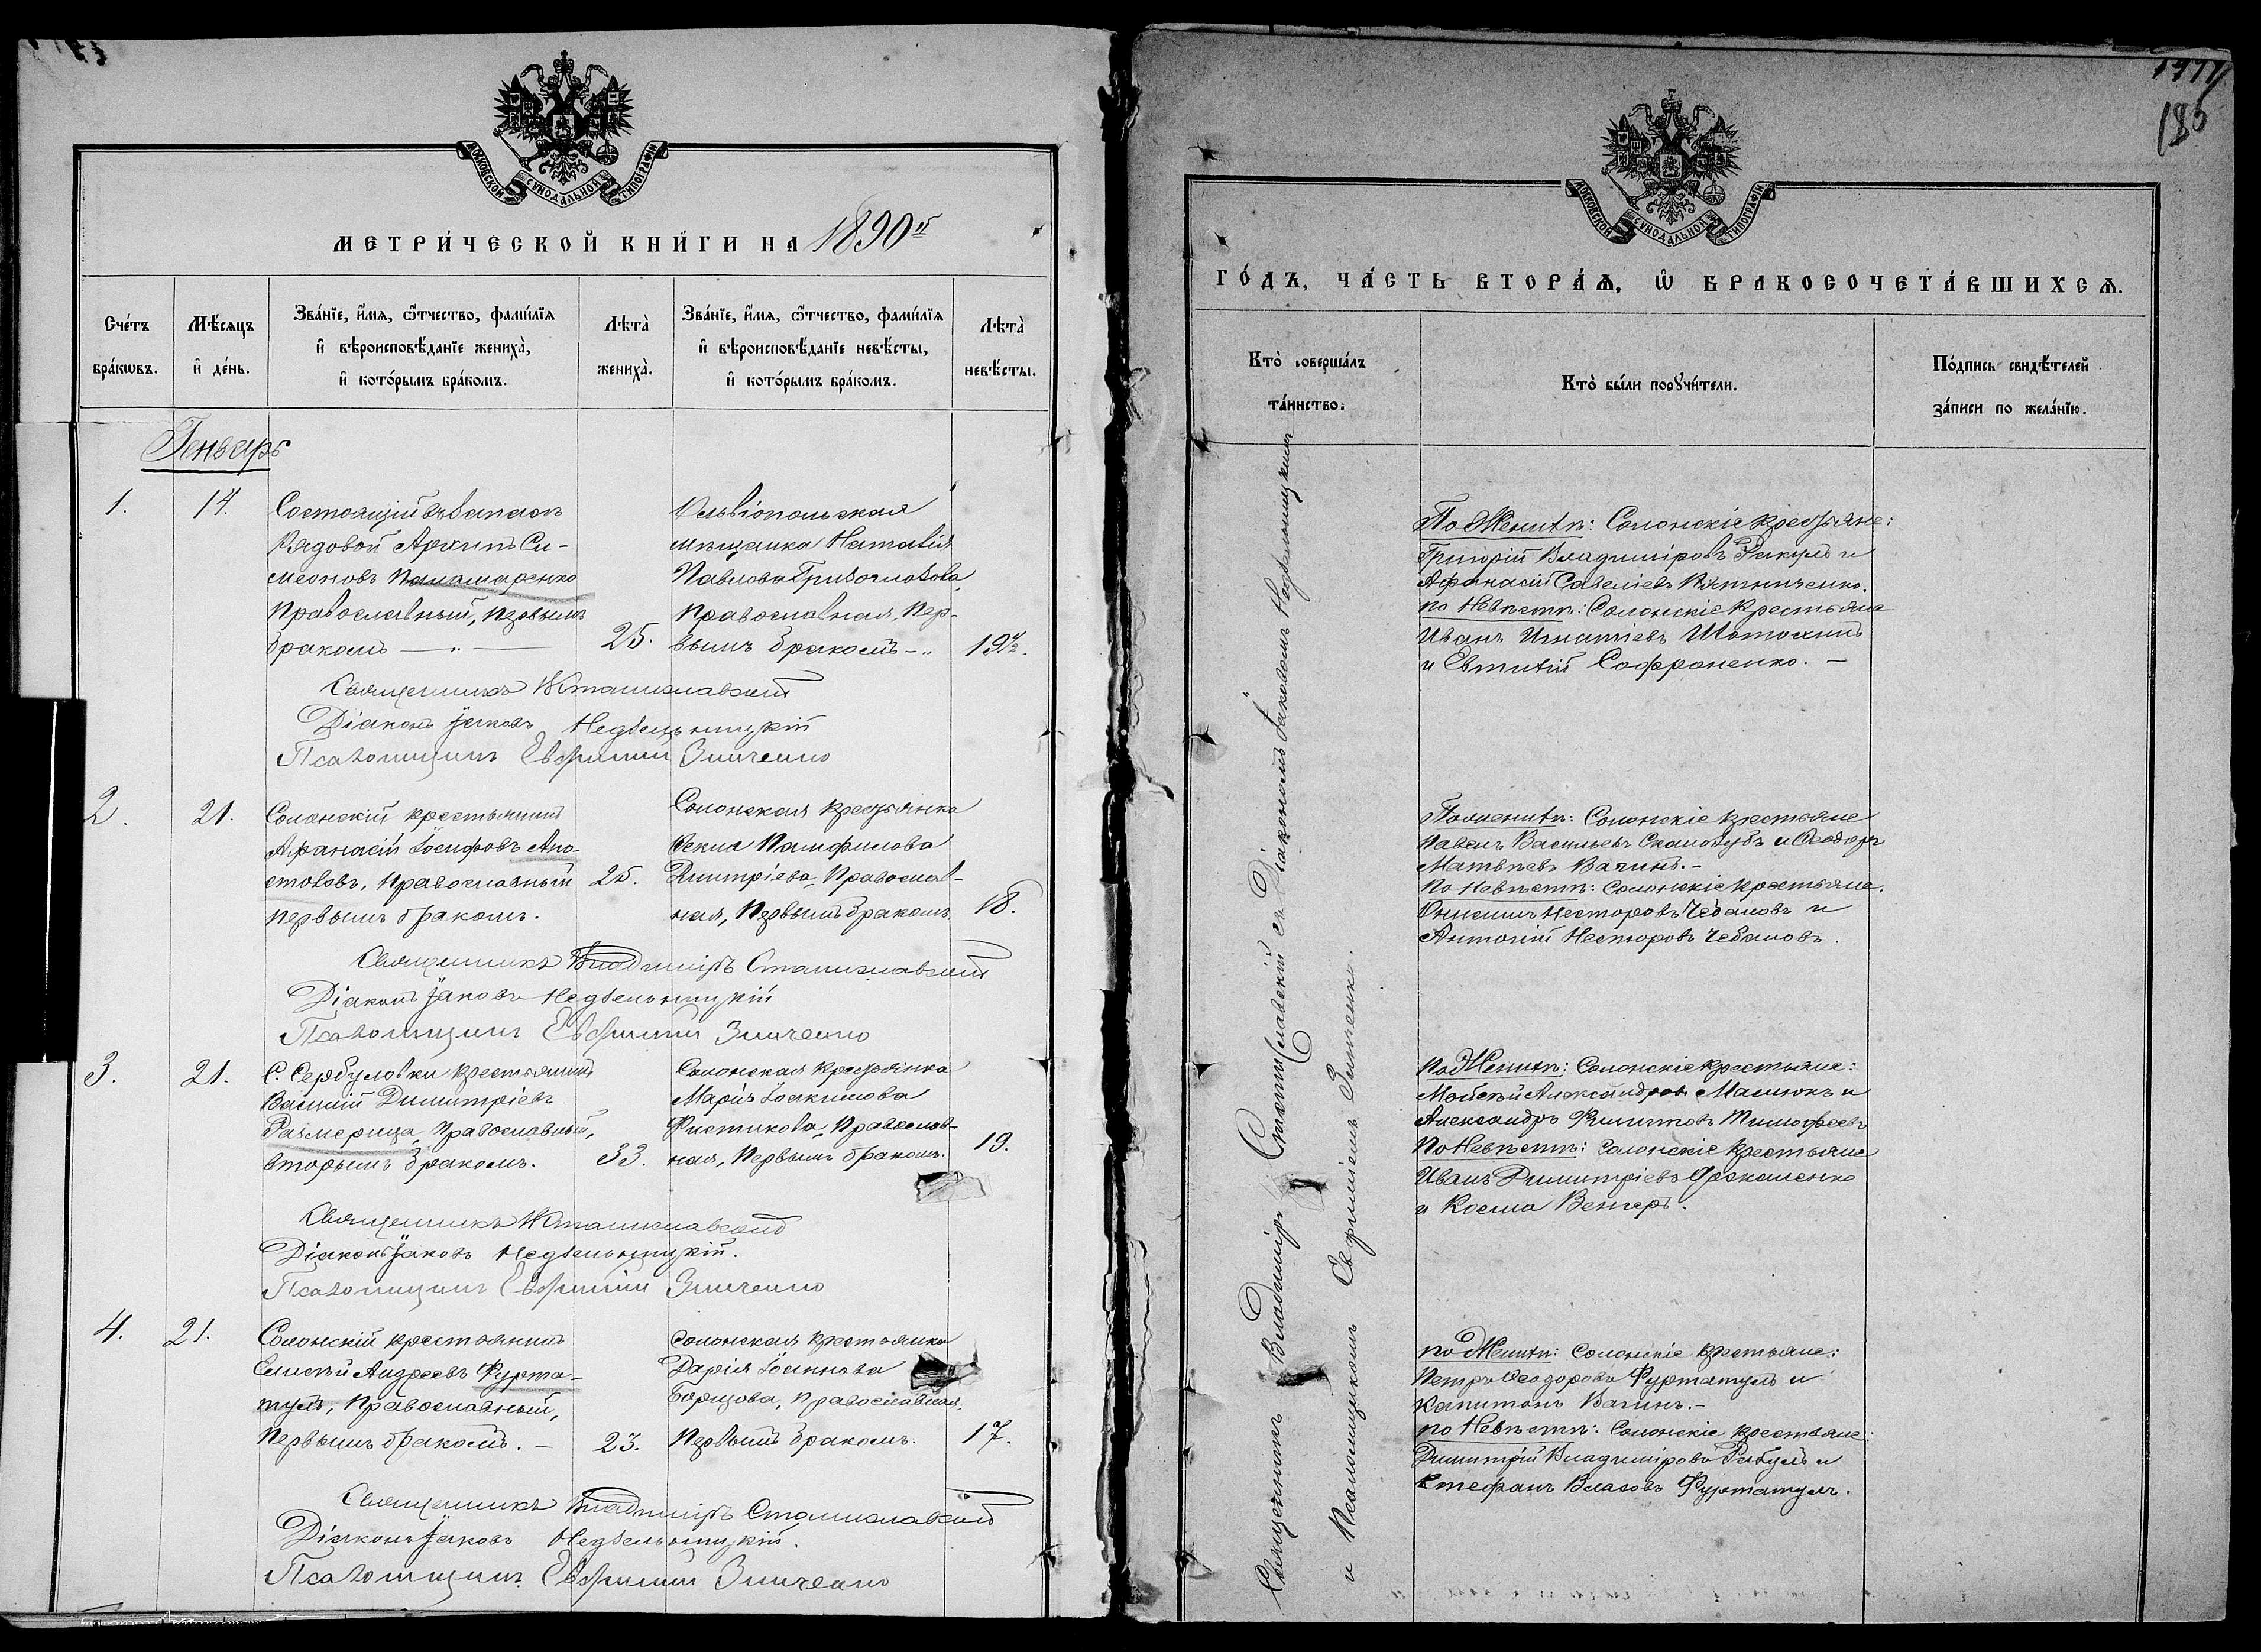 МОСКОВСКОЙ СѴНОДАЛЬНОЙ ТИПОГРАФІИ
МЕТРИ́ЧЕСКОЙ КНИ́ГИ НА 1890й
Сче́тъ бра́кѡвъ.
Мѣ́сяцъ и҆ де́нь.
Зва́нїе, и҆́мя, ѿ́тчество, фами́лїя
и҆ вѣроисповѣ́данїе жениха̀,
и҆ кото́рымъ бра́комъ.
Лѣта̀ жениха̀.
Зва́нїе, и҆́мя, ѿ́тчество, фами́лїя
и҆ вѣроисповѣ́данїе невѣ́сты,
и҆ кото́рымъ бра́комъ.
Лѣта̀ невѣ́сты.
Генварь
1. 14.
Состоящій въ запасѣ
Рядовой Архипъ Си-
меоновъ
Православный, первымъ
бракомъ — „ —
25.
Ольвіопольская
мѣщанка Наталія
Павлова
православная, пер-
вымъ бракомъ — „
19½.
Священникъ ВСтаниславскій
Діаконъ Іаковъ Недзельницкій
Псаломщикъ Евфимій Зинченко
2. 21.
Солонскій крестьянинъ
Афанасій Іосифовъ Апо-
столовъ, православный
первымъ бракомъ.
25.
Солонская крестьянка
Ѳекла Памфилова
Димитріева, Православ-
ная, Первымъ бракомъ
18.
Священникъ Владиміръ Станиславскій
Діаконъ Іаковъ Недзельницкій
Псаломщикъ Евфимій Зинченко
3. 21.
С. Сербуловки крестьянинъ
Василій Димитріевъ
Размерица, Православный,
вторымъ бракомъ.
33.
Солонская крестьянка
Марія Іоакимова
Фистикова, Православ-
ная, Первымъ бракомъ.
19.
Священникъ ВСтаниславскій
Діаконъ Іаковъ Недзельницкій.
Псаломщикъ Евфимій Зинченко
4. 21.
Солонскій крестьянинъ
Елисей Андреевъ Фурта-
тулъ, Православный,
Первымъ бракомъ. —
23.
Солонская крестьянка
Дарія Іоаннова
Борцова, Православная,
Первымъ бракомъ.
17.
Священникъ Владиміръ Станиславскій
Діаконъ Іаковъ Недзельницкій.
Псаломщикъ Евфимій Зинченко
МОСКОВСКОЙ СѴНОДАЛЬНОЙ ТИПОГРАФІИ
ГО́ДЪ, ЧА́СТЬ ВТОРА́Ѧ, Ѡ҆ БРАКОСОЧЕТА́ВШИХСѦ.
Кто̀ соверша́лъ та́инство.
Кто̀ бы́ли порꙋчи́тели.
По́дпись свидѣ́телей
за́писи по жела́нїю.
Священникъ Владиміръ Станиславскій съ Діакономъ Іаковомъ Недзельницкимъ
и Псаломщикомъ Евфиміемъ Зинченко.
По Женихѣ: Солонскіе крестьяне:
Григорій Владиміровъ и
Афанасій Савеліевъ
по Невѣстѣ: Солонскіе Крестьяне
Иванъ Игнатіевъ
и Евтихій Софроненко. —
По женихѣ: Солонскіе крестьяне
Павелъ Васильевъ Скалозубъ и Ѳеодоръ
Матвѣевъ Вагинъ. —
По Невѣстѣ: Солонскіе крестьяне.
Онисимъ Несторовъ Чебановъ и
Антоній Несторовъ Чебановъ.
По Женихѣ: Солонскіе крестьяне:
Мойсей Александровъ и
Александръ Филиповъ Тимофеевъ
По Невѣстѣ: Солонскіе крестьяне
Иванъ Димитріевъ
и Косма Венгеръ.
по Женихѣ: Солонскіе крестьяне:
Петръ Ѳеодоровъ Фуртатулъ и
Капитонъ Вагинъ. —
по Невѣстѣ: Солонскіе крестьяне:
Димитрій Владиміровъ и
Стефанъ Власовъ Фуртатулъ.